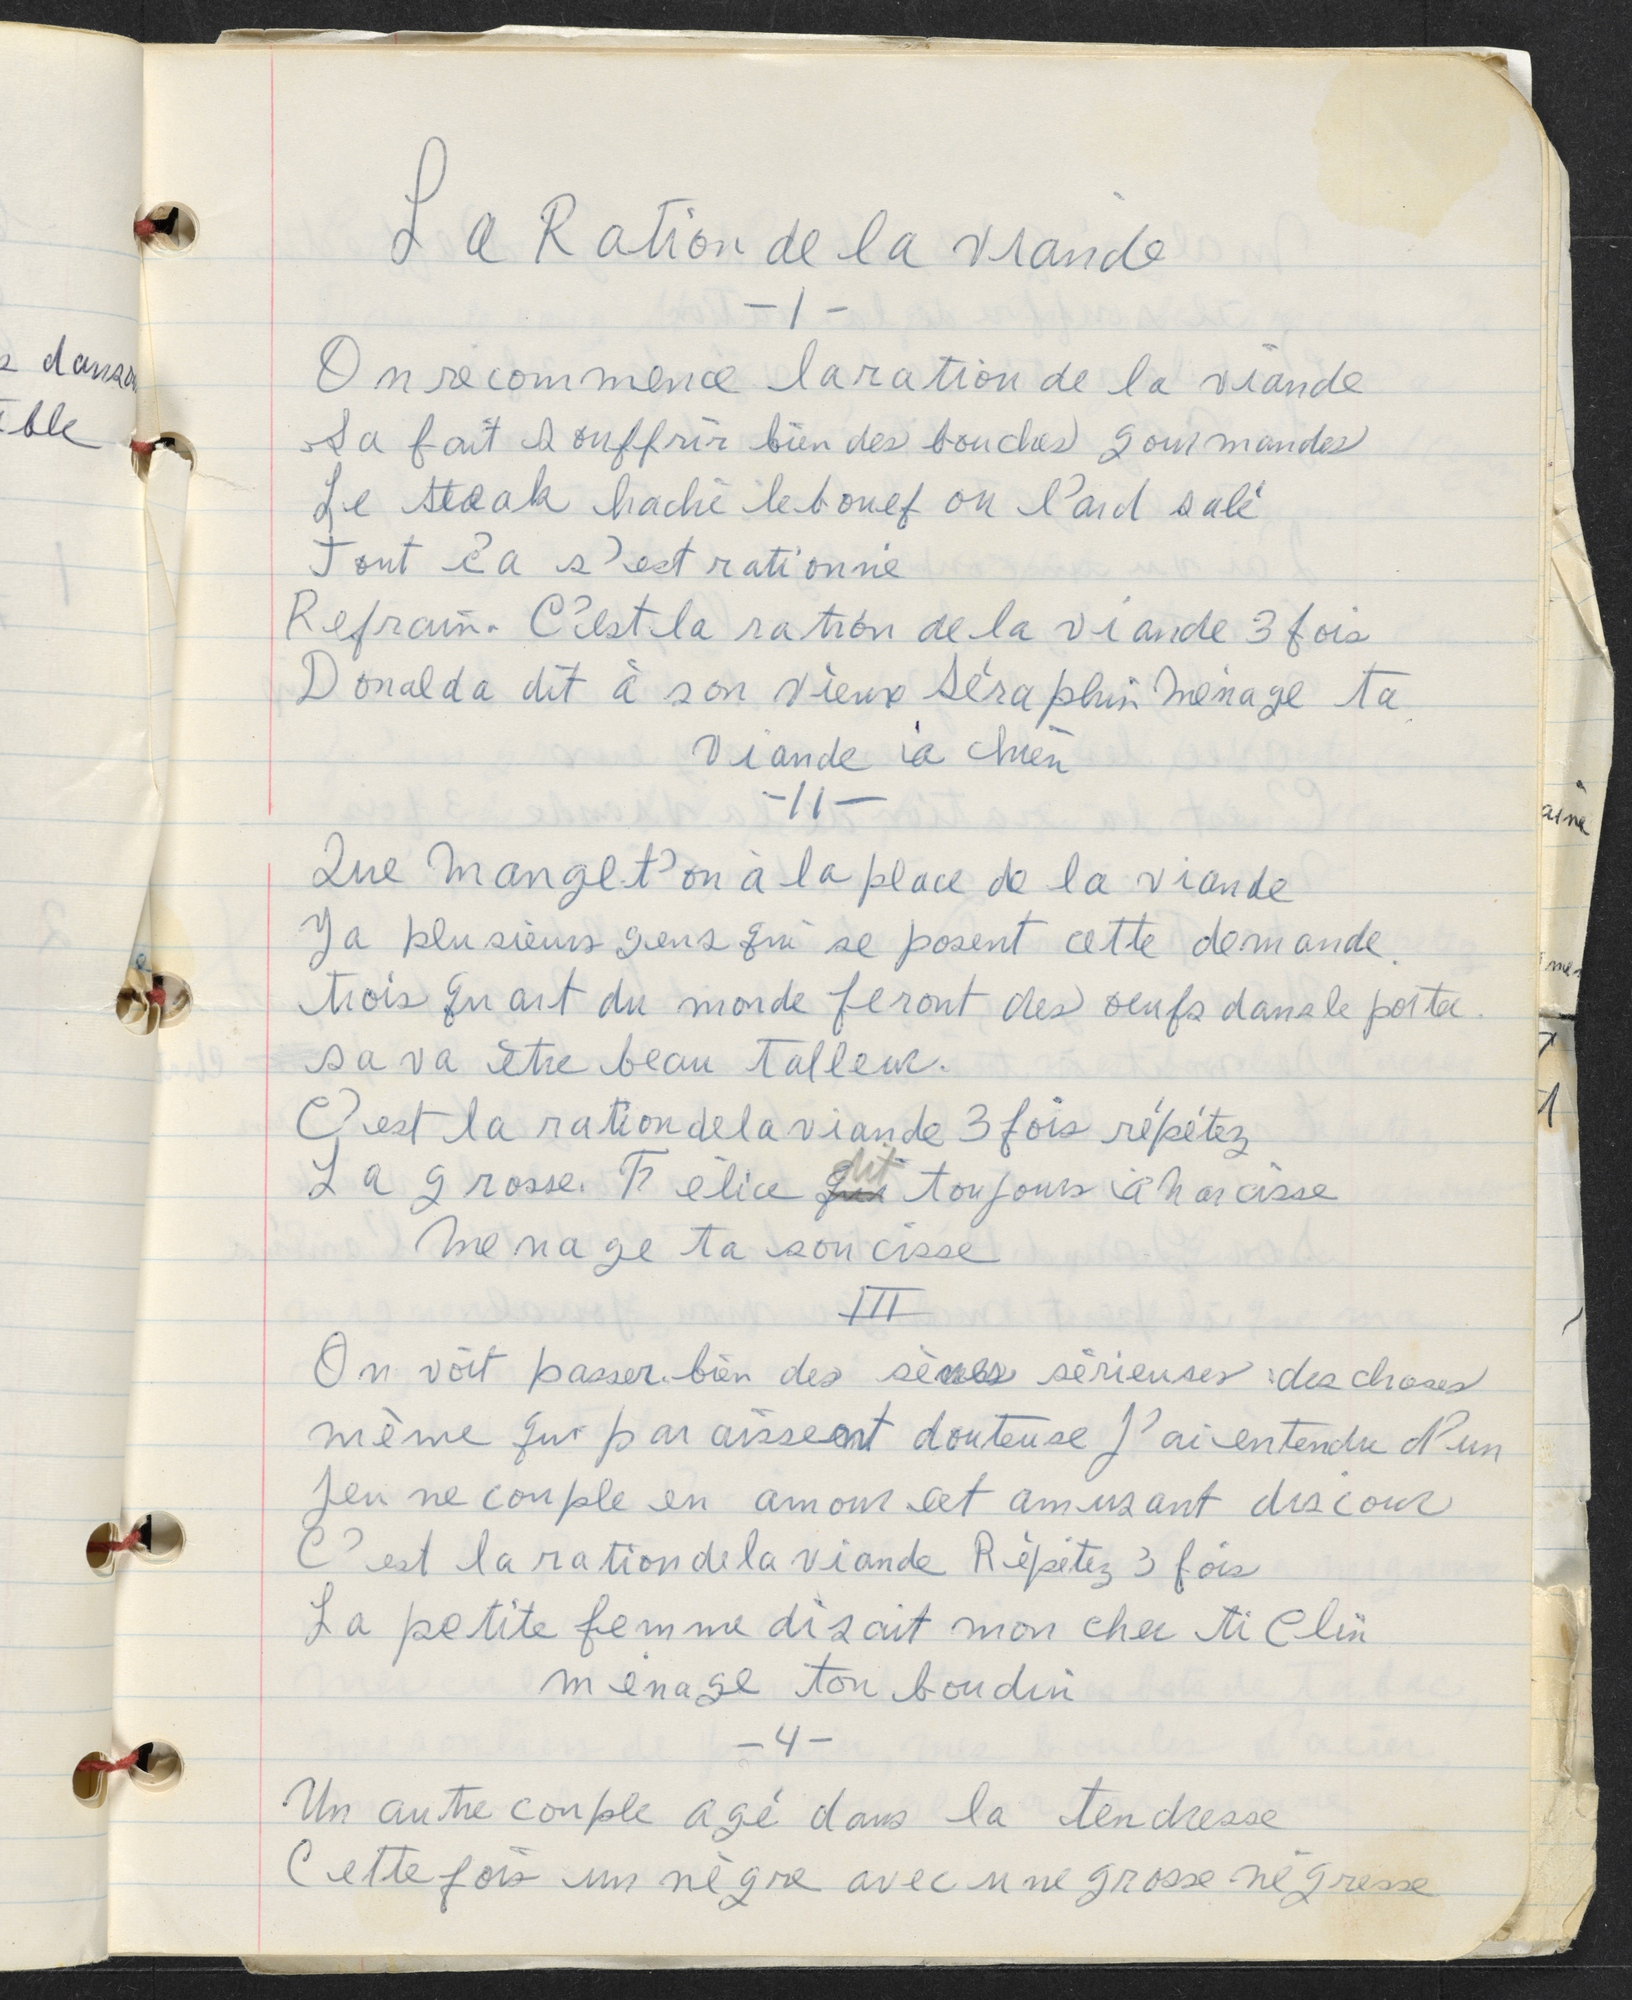 La Ration de la viande
-1-
On recommence la ration de la viande
Sa fait souffrir bien des bouches gourmandes
Le steak haché le bouef ou l'ard salé
Tout ça s'est rationné
Refrain. C'est la ration de la viande 3 fois
Donalda dit à son vieux Séraphin Ménage ta
viande à chien
-11-
Que manget'on à la place de la viande
Ya plusieurs gens qui se posent cette demande.
trois quart du monde feront des oeufs dans le
sa va être beau talleur.
C'est la ration de la viande 3 fois répétez
La grosse Félice dit toujours à Narcisse
Menage ta soucisse
III
On voit passer bien des sènes sérieuses des choses
même qui paraissent douteuse J'ai entendu d'un
jeune couple en amour cet amusant discour
C'est la ration de la viande Répétez 3 fois
La petite femme disait mon cher ti Clin
ménage ton boudin
-4-
Un autre couple agé dans la tendresse
Cette fois un nègre avec une grosse négresse
s danson
ible
aine
mes
1